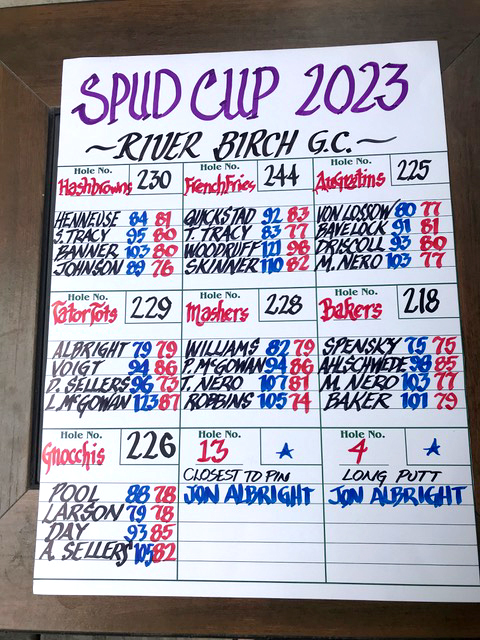 SPUD CUP 2023
~RIVER BIRCH G.C.~
Hole No.
Hashbrowns 230
HENNEUSE 84 81
S. TRACY 95 80
BANNER 103 80
JOHNSON 89 76
Hole No.
FrenchFries 244
QUICKSTAD 92 83
T. TRACY 83 77
WOODRUFF 121 98
SKINNER 110 82
Hole No.
Augratins 225
VON LOSSOW 80 77
BAVELOCK 91 81
DRISCOLL 93 80
M. NERO 103 77
Hole No.
TatorTots 229
ALBRIGHT 79 79
VOIGT 94 86
D. SELLERS 96 73
L. MCGOWAN 123 87
Hole No.
Mashers 228
WILLIAMS 82 79
P. MCGOWAN 94 86
T. NERO 107 81
ROBBINS 105 74
Hole No.
Bakers 218
SPENSKY 75 75
AHLSCHWEDE 98 85
M. NERO 103 77
BAKER 101 79
Hole No.
Gnocchis 226
POOL 88 78
LARSON 79 78
DAY 93 85
A. SELLERS 105 82
Hole No.
13 ☆
CLOSEST TO PIN
JON ALBRIGHT
Hole No.
4 ☆
LONG PUTT
JON ALBRIGHT